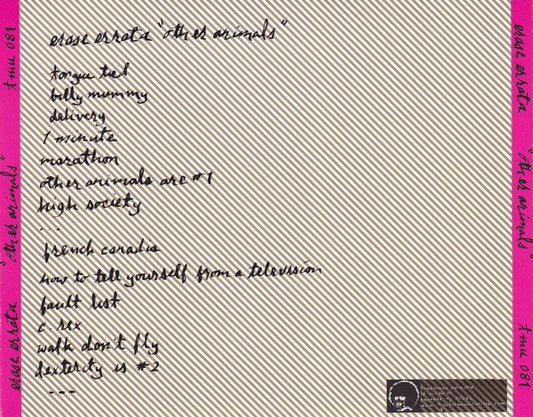 erase errata "other animals"
tongue tied
billy mummy
delivery
1 minute
marathon
other animals are #1
high society
...
french canadia
how to tell yourself from a television
fault list
c. rex
walk don't fly
dexterity is #2
---
tmu 081
"other animals"
erase errata
erase errata
"other animals"
tmu 081